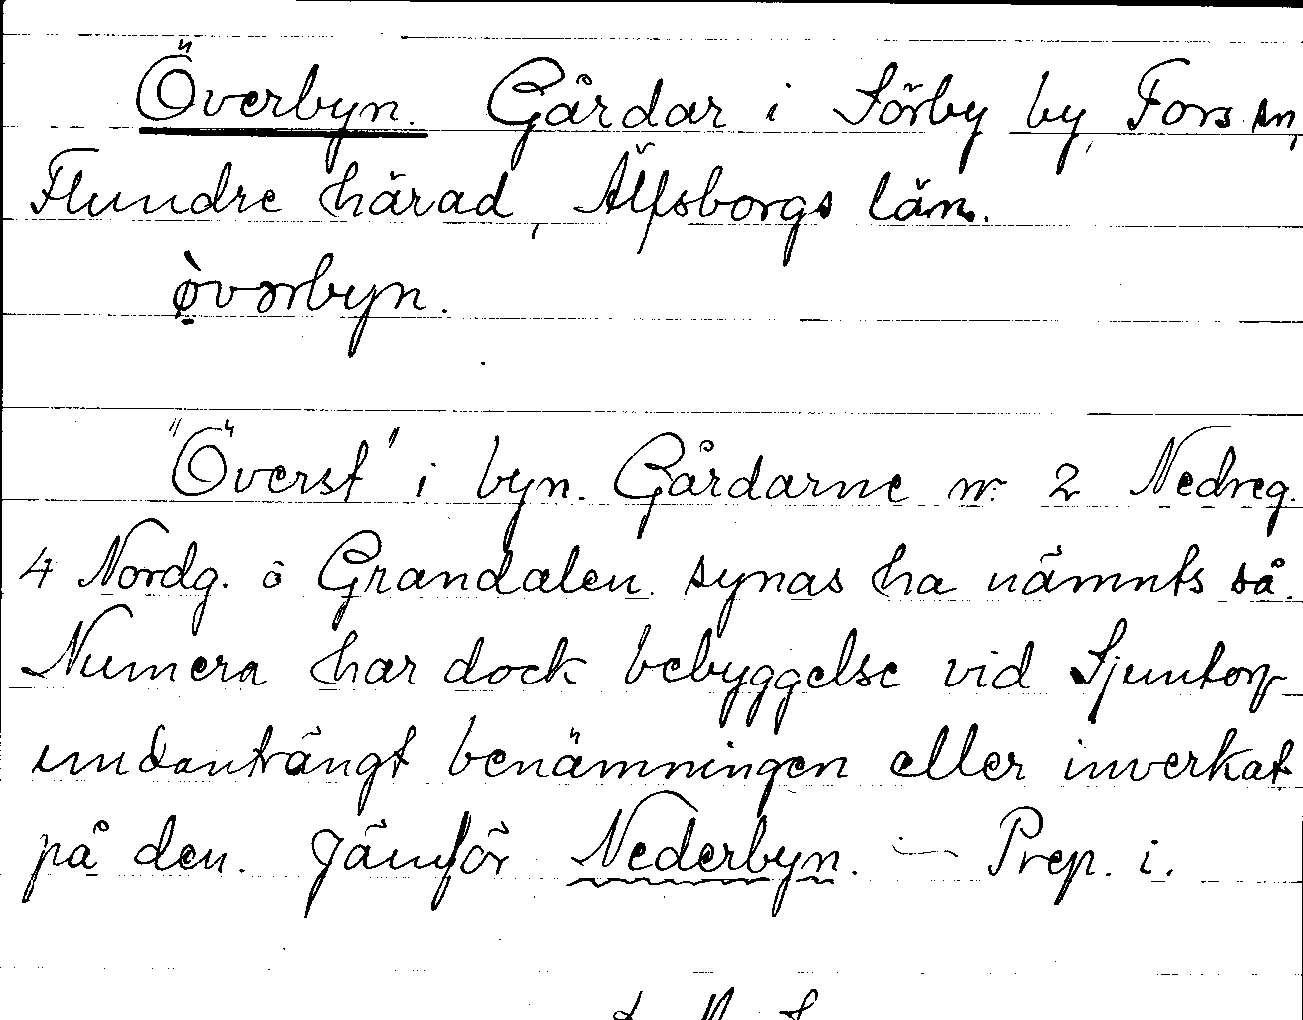 Överbyn. Gårdar i Sörby by, Fors sn,
Flundre härad, Älfsborgs län.
ø̀vərbyn.
"Överst" i byn. Gårdarne nr. 2 Nedreg.
4 Nordg. o Grandalen synas ha nämnts så.
Numera har dock bebyggelse vid Sjuntorp
undanträngt benämningen eller inverkat
på den. Jämför Nederbyn. — Prep. i.